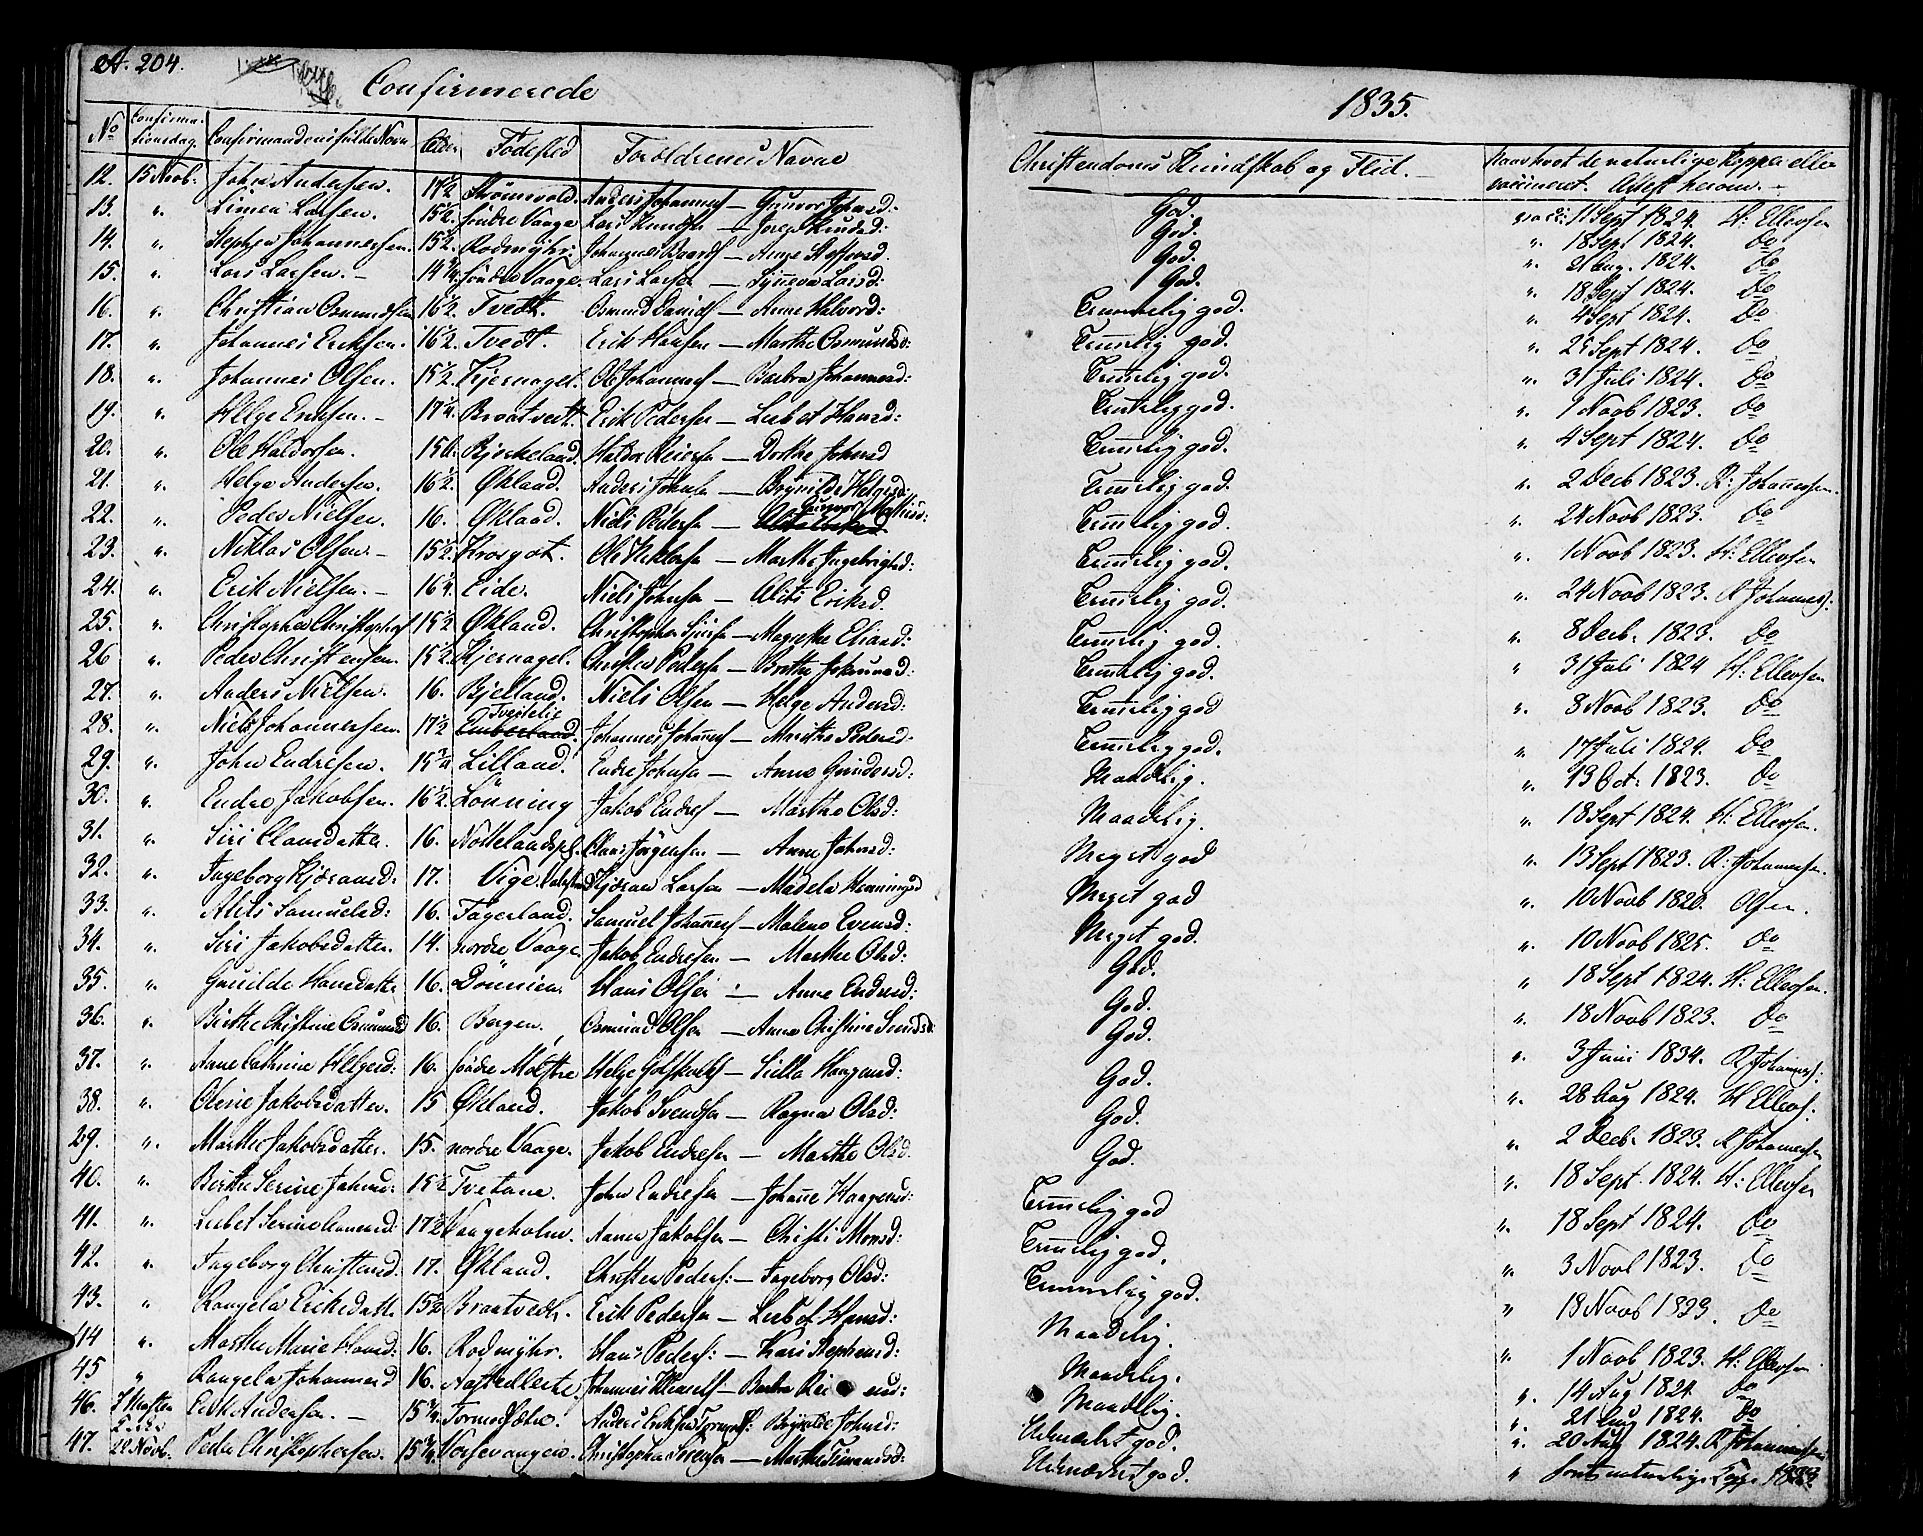 A. 204.
Confirmerede
1835.
No Confirmationsdag Confirmandens fulde Navn Alder Födested Forældrenes Navne Christendoms Kundskab og Flid. Naar hvet de naturlige Kopper eller vaccineret. Attest herom.
12. 15 Novb. John Andersen. 17½ Anders Johannes — Gunvor Johnsd: God. vacc: 11 Sept 1824. H: Ellevsen
13. " Simen Larsen. 15½ söndre Vaage Lars Knudsen — Knudsd: God. " 18 Sept 1824. Do
14. " Stephen Johannessen. 15½ Rodmyhr: Johannes — Anne God. " 21 Aug. 1824. Do
15. " Lars Larsen. — 14¾ söndre Vaage. Lars Larsen — Synneva Larsd: God. " 18 Sept 1824. Do
16. " Christian Osmundsen 16½ Tvedt. Osmund Davids — Anne Halvord: Temmelig god. " 4 Sept 1824. Do
17. " Johannes Eriksen. 16½ Tvedt. Erik Hansen — Marthe Osmundsd: Temelig god. " 25 Sept 1824. Do
18. " Johannes Olsen. 15½ Kjernagel. Ole Johannes — Barbra Johannesd: Temelig god. " 31 Juli 1824. Do
19. " Helge Eriksen. — 17¼ Braatvedt. Erik Pedersen — Lisbet Hansd: Temelig god. " 1 Novb 1823. Do
20. " Ole Haldorsen. 15 Bjorkeland. Haldor Reiersen — Dorthe Johnsd Temelig god. " 4 Sept 1824. Do
21. " Helge Andersen. 16½ Økland. Anders Johnsen — Brynilde Helgesd: Temelig god. " 2 Decb 1823. R: Johannesen.
22. " Peder Nielsen. 16. Økland. Niels Pedersen — Gunnvor Mathisd: Temelig god. " 24 Novb 1823. Do
23. " Niklas Olsen — 15½ Krosgot. Ole Niklasen — Marthe Ingebrigtsd: Temelig god. " 1 Novb 1823. H: Ellevsen
24. " Erik Nielsen. — 16¼ Eide. Niels Johnsen — Alits Eriksd. Temelig god. " 24 Novb 1823. R Johannes:
25. " Christopher Christophers 15½ Økland. Christopher — Magrethe Eliasd: Temelig god. " 8 Decb. 1823. Do
26 " Peder Christensen. 15½ Kjernagel. Christen Pedersen — Berthe Johannesd: Temelig god. " 31 Juli 1824 H: Ellevsen
27. " Anders Nielsen. 16. Bjelland. Niels Olsen — Helge Andersd: Temelig god " 8 Novb 1823. Do
28. " Niels Johannessen. 17½ Tveitelie Johannes Johannes — Marthe Pedersd. Temelig god. " 17 Juli 1824. Do
29. " John Endresen. 15¾ Lilland. Endre Johnsen — Anne Gundersd: Maadelig. " 13 Oct. 1823. Do
30. " Endre Jakobsen. 16½ Lönning Jakob Endres — Marthe Olsd: Maadelig. " 18 Sept 1824. H: Ellevsen.
31. " Siri Clausdatter. 16. Nottelandspl. Claus Jörgensen — Anne Johnsd: Meget god " 13 Sept 1823. R: Johannesen.
32. " Ingeborg Kjöransd: 17. Vige Kjöran Larsen — Madela Henningsd Meget god " 10 Novb 1820. Olsen.
33. " Alits Samuelsd: 16. Fagerland. Samuel Johannes — Malene Evensd: Meget god. " 10 Novb 1825. Do
34. " Siri Jakobsdatter. 14. nordre Vaage Jakob Endresen — Marthe Olsd: God. " 18 Sept 1824. H: Ellevsen.
35. " Gunilde Hansdatter 16. Hans Olsen — Anne Endresd: God. " 18 Novb 1823. Do
36. " Birthe Christine Osmundsd 16. Bergen. Osmund Olsen — Anne Christine Svendsd: God. " 3 Juni 1834. R Johannes:
37. " Anne Cathrine Helgesd: 16. söndre Möstre Helge — Silla Haagensd: God. " 28 Aug 1824. H Ellevs:
38. " Oline Jakobsdatter. 15 Økland. Jakob Svendsen — Ragna Olsd: God. " 2 Decb. 1823. R Johannesen
39. " Marthe Jakobsdatter. 15. nordre Vaage. Jakob Endresen — Marthe Olsd. God. " 18 Sept. 1824. H: Ellevsen
40. " Birthe Serine Johnsd: 15½ Tveitane. John Endresen — Johanne Haagensd: Temelig god " 18 Sept 1824. Do
41. " Lisbet Serine 17½ Vaageholm. Jakobsen — Christi Monsd: Temelig god. " 3 Novb 1823. Do
42. " Ingeborg Christensd: 17. Økland. Christen Peders: — Ingeborg Olsd: Temmelig god. " 18 Novb 1823. Do
43. " Rangela Eriksdatter 15½ Braatvedt. Erik Pedersen — Lisbet Hansd: Maadelig. " 1 Novb 1823. H: Ellevsen
44 " Marthe Marie Hansd: 16. Rodmyhr. Hans Peders: — Kari Stephensd: Maadelig. " 14 Aug 1824. Do
45 " Rangela Johannesd 16. Johannes — Barbra Maadelig. " 21 Aug 1824. Do
46. Erik Andersen. — 15¾ Anders Eriksen Brynilde Johnsd: Udmærket god. " 20 Aug 1824. R Johannesen
47. 22 Novb. Peder Christophersen. 15¾ Vorsevangen. Christopher Sörensen — Marthe Udmærket god. " havt naturlige Kopp: 1833.